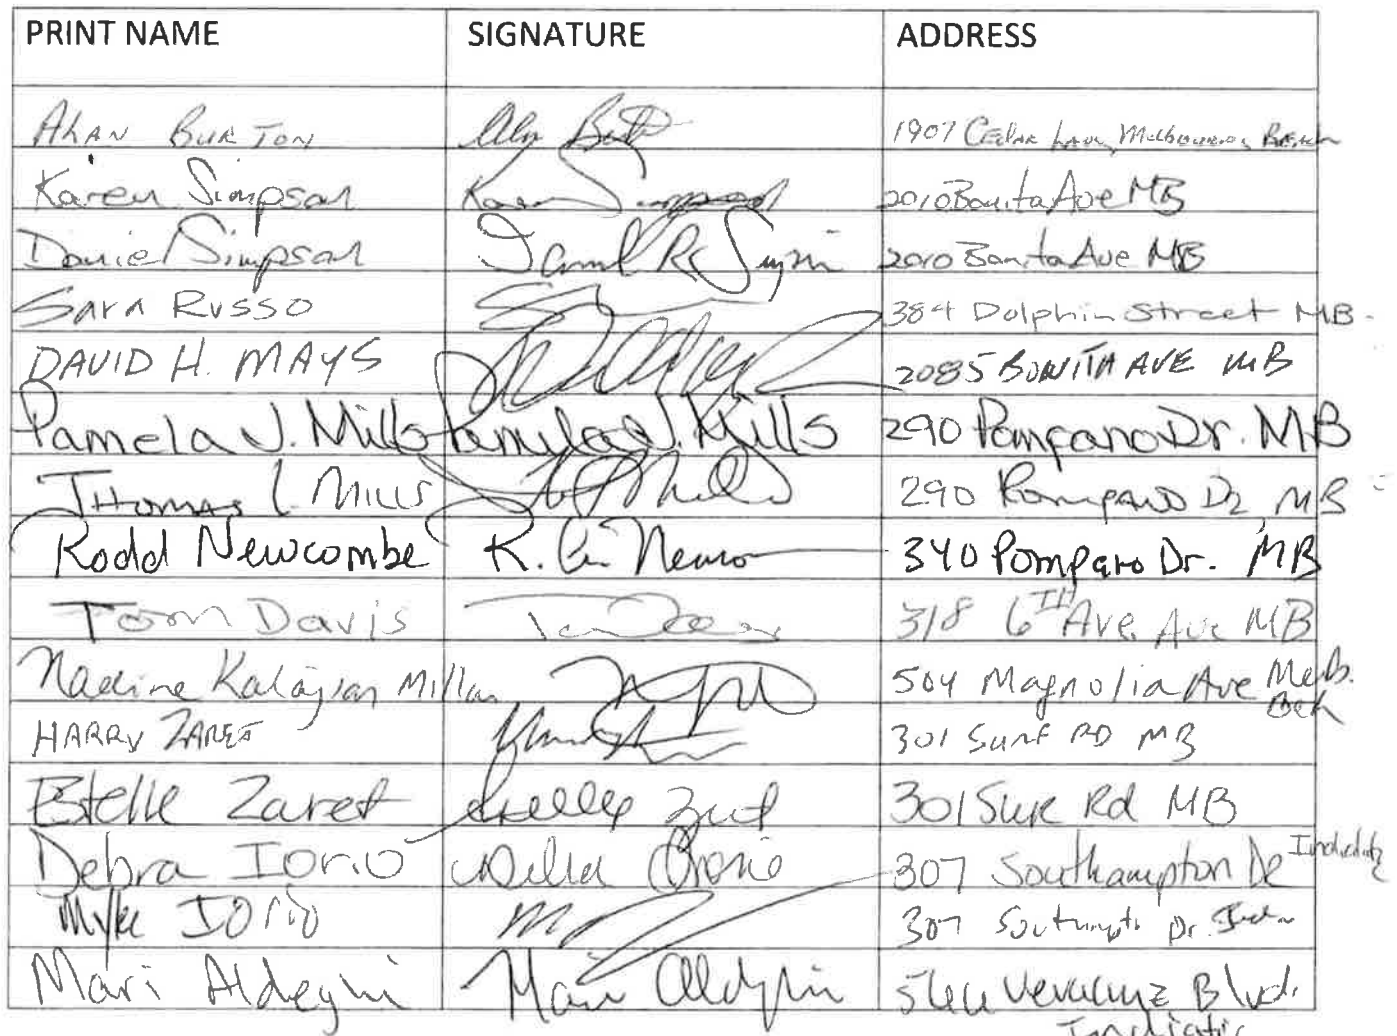 PRINT NAME SIGNATURE ADDRESS
ALAN BURTON Alan Burton 1907 CEDAR LANE, Melbourne, BEACH
Karen Simpson Karen Simpson 2010 Bonita Ave MB
Daniel Simpson Daniel R Simpson 2010 Bonita Ave MB
SARA RUSSO 384 Dolphin Street MB.
DAVID H. MAYS 2085 BONITA AVE MB
Pamela J. Mills Pamela J. Mills 290 Pompano Dr. MB
THOMAS L MILLS 290 Pompano Dr MB
Rodd Newcombe 340 Pompano Dr. MB
Tom Davis Tom Davis 318 6TH Ave. Ave MB
Nadine Kalajian Millar 504 Magnolia Ave Melb. Bch
HARRY ZARET 301 SURF RD MB
Estelle Zaret Estelle Zaret 301 Surf Rd MB
Debra Iorio Debra Iorio 307 Southampton Dr
Myke IORIO 307 Dr.
Mari Aldeghi Mari Aldeghi Veracruz Blvd.